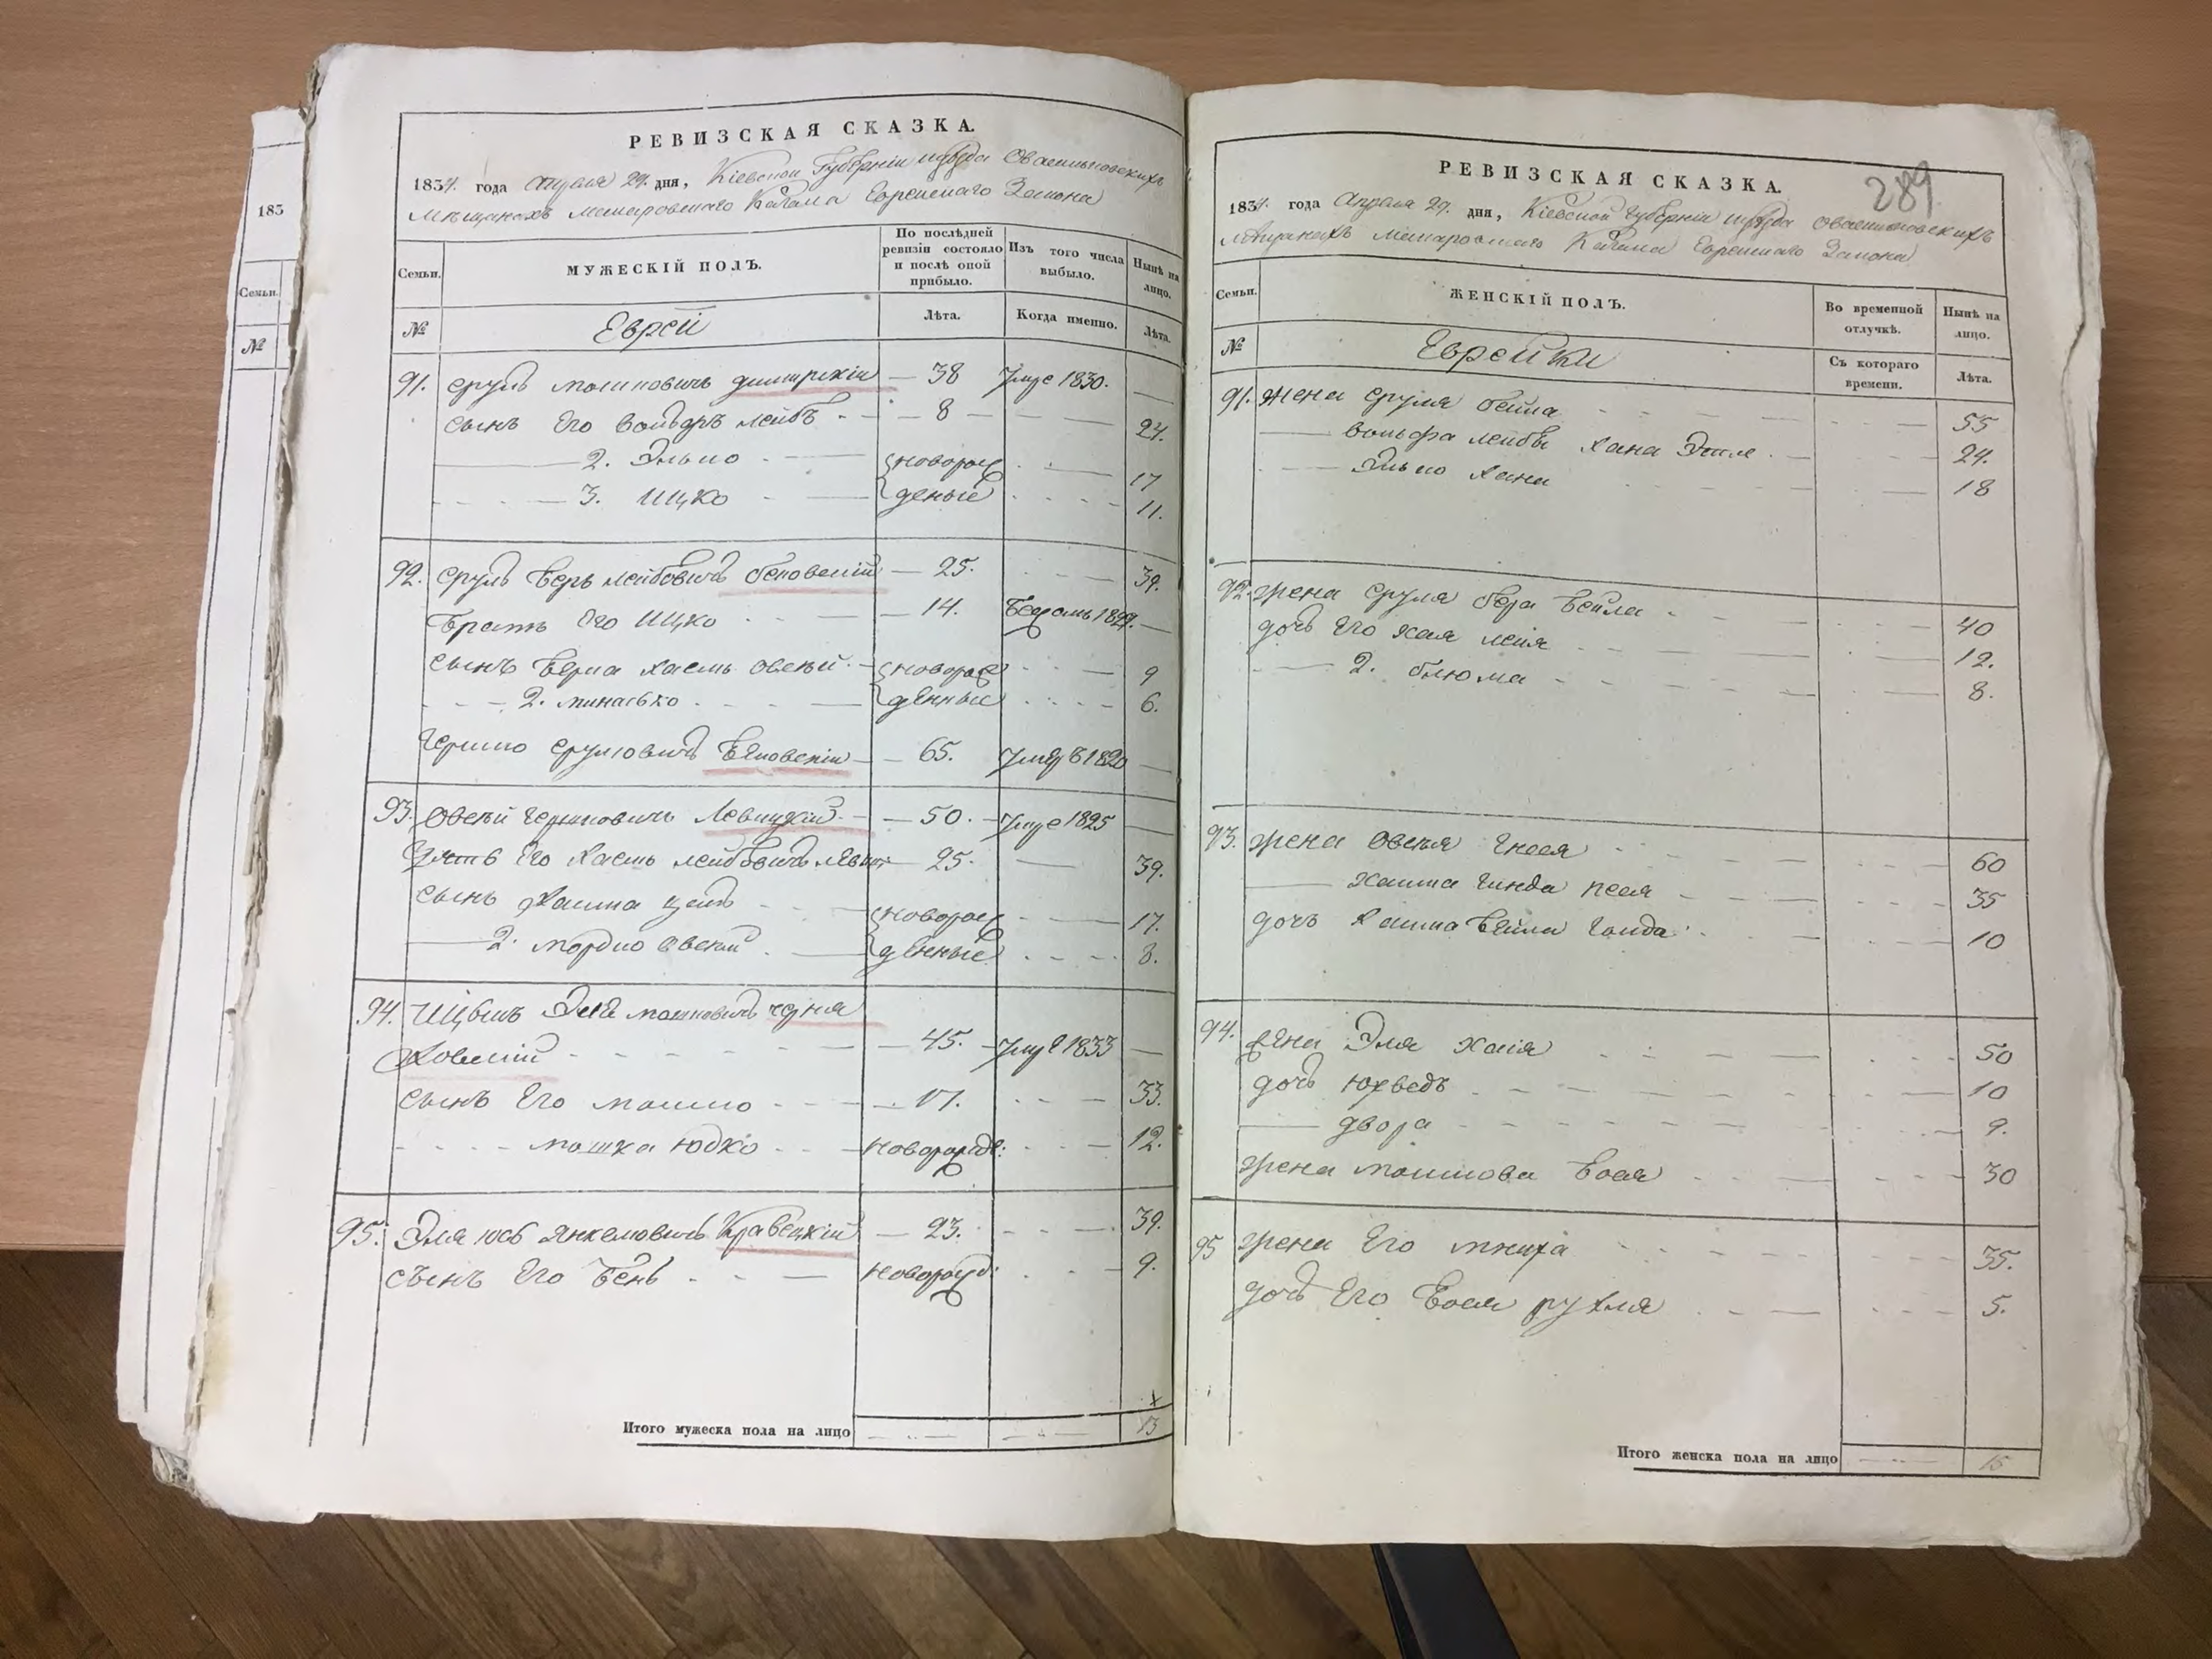 183
Семьи.
№
РЕВИЗСКАЯ СКАЗКА.
1834. года Апреля 29. дня, Кіевской Губерніи
Мещанахъ Кагала Еврейскаго Закона
Семьи.
МУЖЕСКІЙ ПОЛЪ.
По послѣдней ревизіи состояло и послѣ оной прибыло.
Изъ того числа выбыло.
Нынѣ на лицо.
№
Еврей
Лѣта.
Когда именно.
Лѣта.
91. Сруль Мошковичъ Димирскій — 38 Умре 1830. —
Сынъ Его Вольфъ Лейбъ — 8 — 24.
2. Элько {новорож 17
3. Ицко {деные 11.
92. Сруль Беръ Лейбовичъ — 25. 39.
Братъ Его Ицко — 14. 1827. —
Сынъ Берка Хаимъ Овсѣй {новорож 9
2. Минасько {денные 6.
Гершко Сруловичъ — 65. Умре 1820 —
93. Овсѣй Гершковичъ Левицкій — 50. Умре 1825 —
Зять Его Хаимъ Лейбовичъ — 25. — 39.
Сынъ Хаима {новорож 17.
2. Мордко Овсѣй {денные 8.
94. Эля Мошковичъ Черня
Ховскій — 45. Умре 1833 —
Сынъ Его Мошко — 17. 33.
Мошка Юдко — новорожд: 12.
95. Эля Іось Янкелевичъ Кравецкій — 23. 39.
Сынъ Его Бень — новорожд: 9.
х
Итого мужеска пола на лицо 13
289
РЕВИЗСКАЯ СКАЗКА.
1834. года Апреля 29. дня, Кіевской Губерніи
Мещанахъ Кагала Еврейскаго Закона
Семьи.
ЖЕНСКІЙ ПОЛЪ.
Во временной отлучкѣ.
Нынѣ на лицо.
№
Еврейки
Съ котораго времени.
Лѣта.
91. Жена Сруля Бейла 55
Вольфа Лейбы Хана Этля 24.
Элько Хана 18
92. Жена Сруля Бера Бейла 40
дочь Его Хая Лея 12.
2. Блюма 8.
93. Жена Овсѣя Гнеся 60
Хаима Гинда Песя 35
дочь Хаима Бейла Голда 10
94. Жена Эля Хая 50
дочь Юхведъ 10
Двора 9.
Жена Мошкова Бося 30
95 Жена Его Мниха 35.
дочь Его Бося Рухля 5.
Итого женска пола на лицо 15